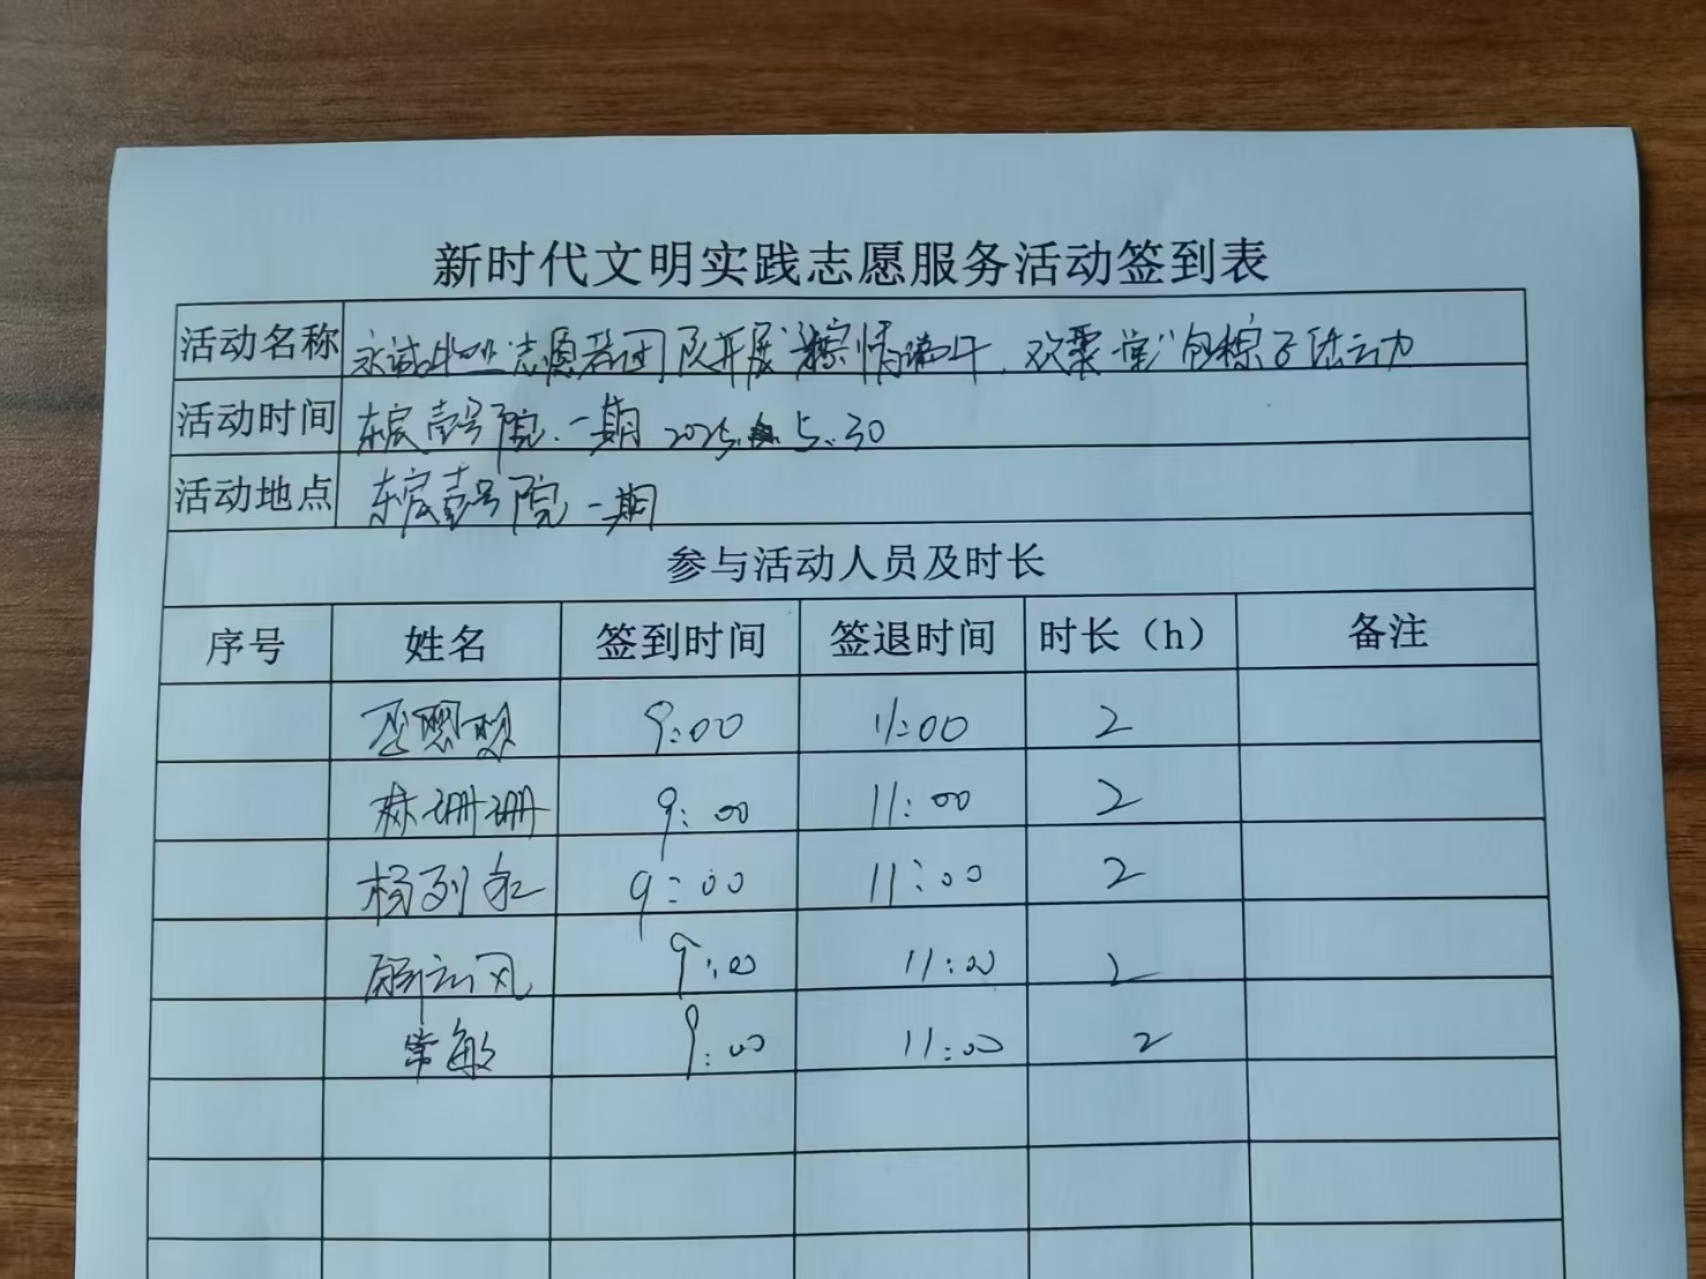 新时代文明实践志愿服务活动签到表
活动名称 永诚物业志愿者团队开展"粽情端午，欢聚一堂"包粽子活动
活动时间 东宸壹号院一期 2025.5.30
活动地点 东宸壹号院一期
参与活动人员及时长
序号 姓名 签到时间 签退时间 时长（h） 备注
9:00 11:00 2
林珊珊 9:00 11:00 2
杨列红 9:00 11:00 2
解云风 9:00 11:00 2
常敏 9:00 11:00 2